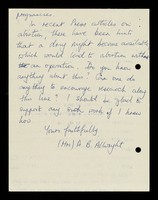 pregnancies.
In recent Press articles on
abortion, there have been hints
that a drug might become available
which would lead to abortion without
an operation. Do you know
anything about this? Can one do
anything to encourage research along
this line? I should be glad to
support any such work if I knew
how.
Yours faithfully
(Mrs) A. B. Allwright